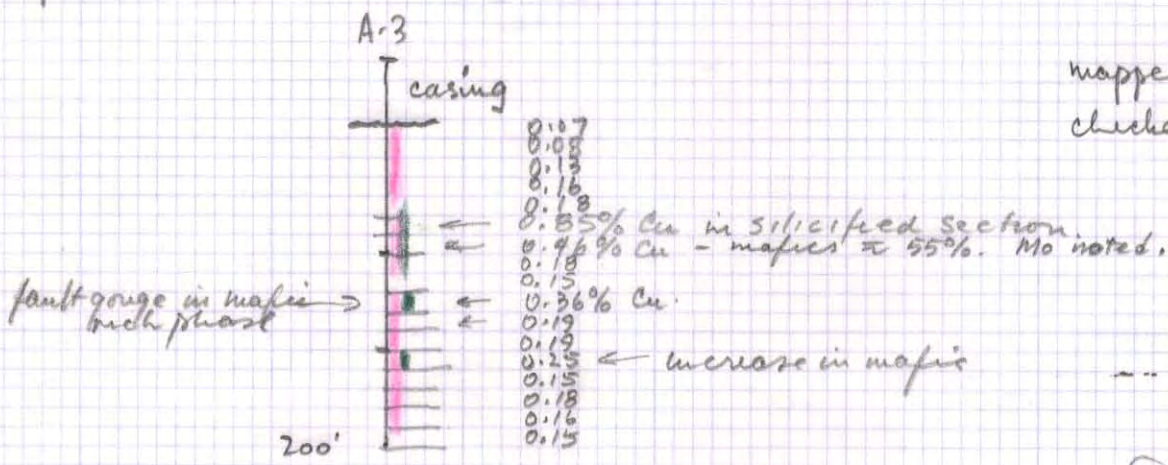 A-3
casing
mappe
checke
0.07
0.08
0.13
0.16
0.18
0.85% Cu in silicified section
0.46% Cu - mafics ≈ 55%. Mo noted.
0.18
0.15
fault gouge in mafic
rich phase
0.36% Cu.
0.19
0.19
0.25 ← increase in mafic
0.15
0.18
0.16
0.15
200'